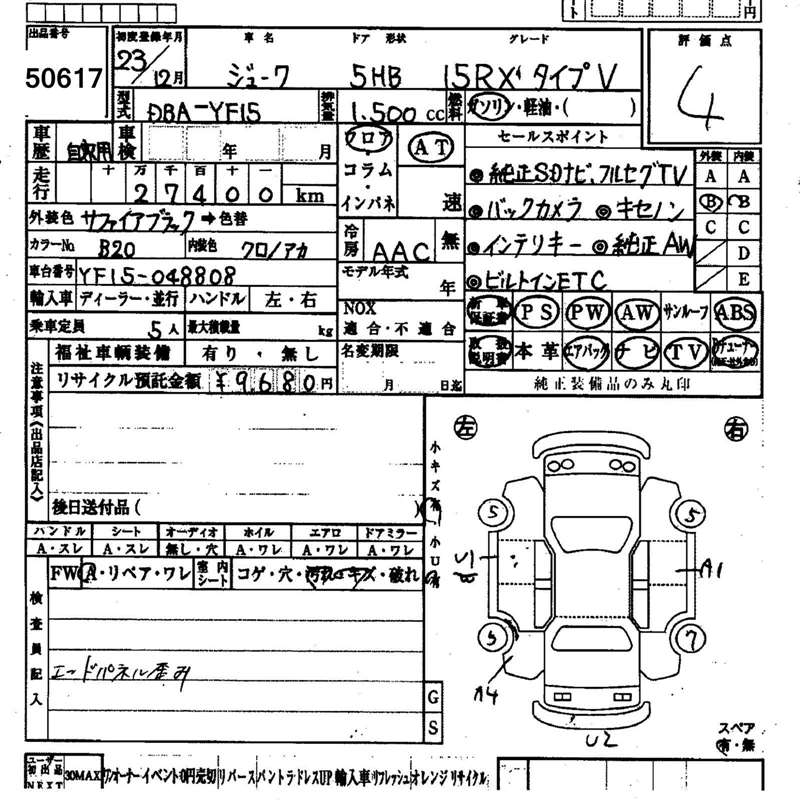 出品番号
50617
初度登録年月
23/12月
車名
ジューク
ドア 形状
5HB
グレード
15RX タイプV
評価点
4
型式
DBA-YF15
排気量
1.500 CC
燃料
ガソリン・軽油・( )
車歴
自家用
車検
年 月
フロア・コラム・インパネ
AT
速
セールスポイント
◎純正SDナビ、フルセグTV
◎バックカメラ ◎キセノン
◎インテリキー ◎純正AW
◎ビルトインETC
外装 内装
A A
B B
C C
D
E
走行
十 万 千 百 十 一
27400 km
外装色 サファイアブラック ➡ 色替
カラーNo B20
内装色 クロ/アカ
冷房
AAC
無
車台番号 YF15-048808
モデル年式
年
輸入車 ディーラー・並行 ハンドル 左・右
NOX
適合・不適合
乗車定員 5人
最大積載量 kg
新車保証書 PS PW AW サンルーフ ABS
取扱説明書 本革 エアバッグ ナビ TV
純正装備品のみ丸印
福祉車輌装備 有り・無し
名変期限
月 日迄
リサイクル預託金額 ¥9680円
注意事項《出品店記入》
後日送付品( )
小キズ有
小U有
ハンドル シート オーディオ ホイル エアロ ドアミラー
A・スレ A・スレ 無し・穴 A・ワレ A・ワレ A・ワレ
FW A・リペア・ワレ
室内シート コゲ・穴・汚れ・キズ・破れ
検査員記入
エードパネル歪み
G
S
左 右
5 5
U1
A1
5 7
A4
U2
スペア
有・無
ユーザー初出品
NEXT
30MAX ワンオーナー イベント 0円完切 リバース パントラ ドレスUP 輸入車 リフレッシュ オレンジ リサイクル